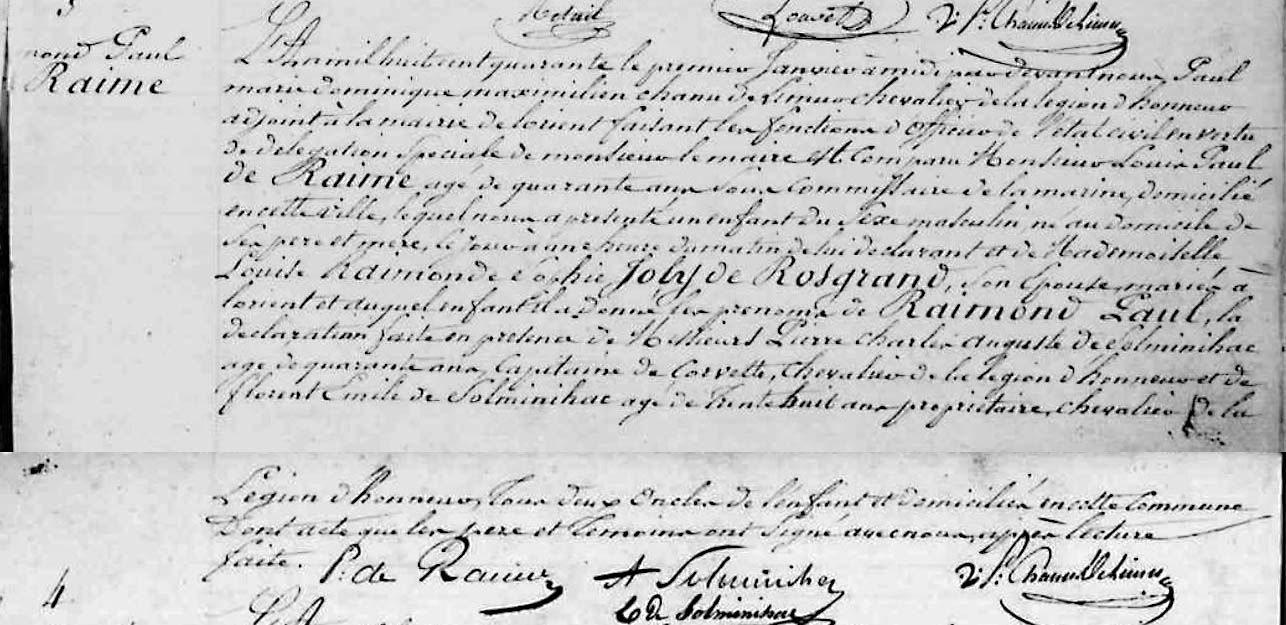 3
Louvel
mond Paul
Raime
L'An mil huit cent quarante le premier Janvier à midi par devant nous, Paul
marie dominique maximilien chanu de Limur chevalier de la légion d'honneur
adjoint à la mairie de lorient faisant les fonctions d'Officier de l'état civil en vertu
de délégation Spéciale de monsieur le maire est Comparu Monsieur Louis Paul
de Raime, agé de quarante ans Sous Commissaire de la marine, domicilié
en cette ville, lequel nous a présenté un enfant du Sexe masculin né au domicile de
Ses pere et mère, ce jour à une heure du matin de lui déclarant et de Mademoiselle
Louise Raimonde Sophie Joly de Rosgrand, Son Epouse, mariés à
lorient et auquel enfant il a donné les prénoms de Raimond Paul, la
déclaration faite en présence de Messieurs Pierre Charles auguste de Solminihac
agé de quarante ans, Capitaine de Corvette, Chevalier de la légion d'honneur et de
florent Emile de Solminihac agé de Trente huit ans propriétaire, chevalier de la
Légion d'honneur, Tous deux Oncles de l'enfant et domiciliés en cette Commune
Dont acte que les pere et Temoins ont Signé avec nous, après lecture
faite. P. de Raime A Solminihac
E de Solminihac
4
L'An